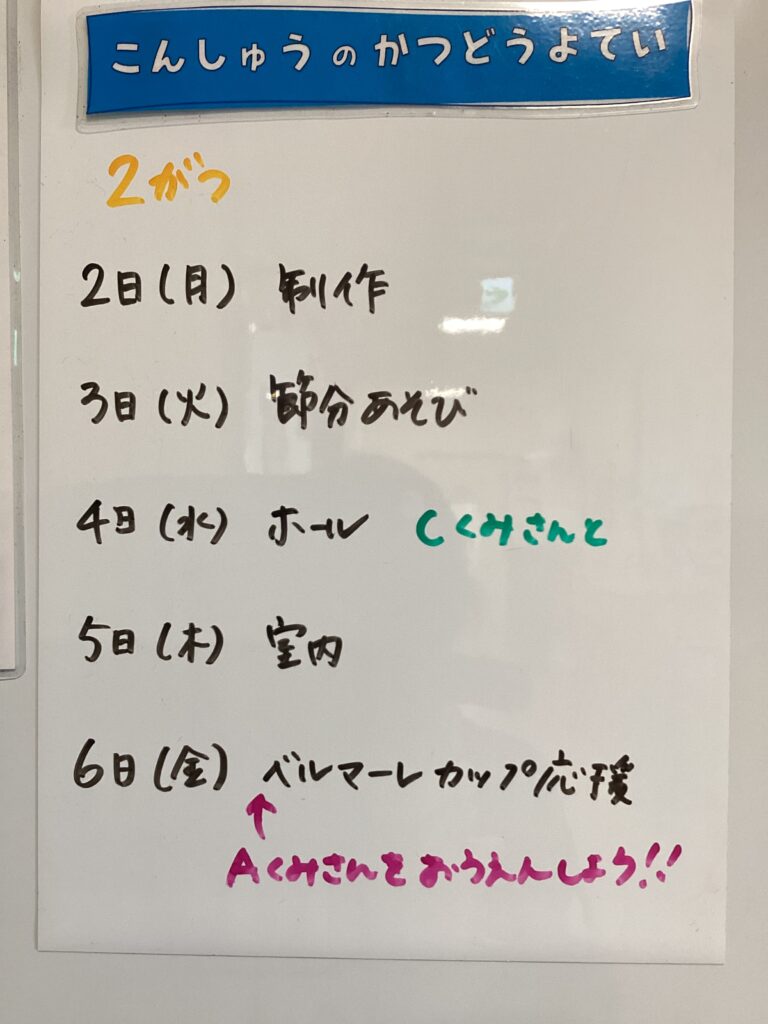 こんしゅうのかつどうよてい
2がつ
2日(月) 制作
3日(火) 節分あそび
4日(水) ホール Cくみさんと
5日(木) 室内
6日(金) ベルマーレカップ応援
↑
Aくみさんをおうえんしよう!!